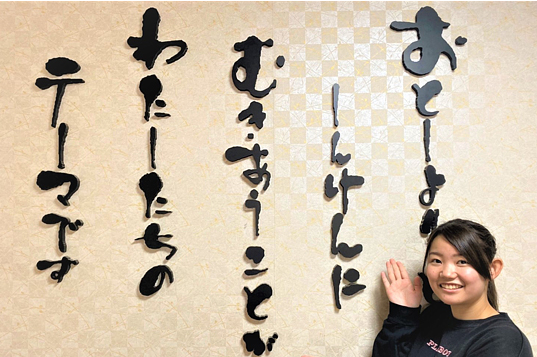 おとしより
しんけんに
むきあうことが
わたしたちの
テーマです